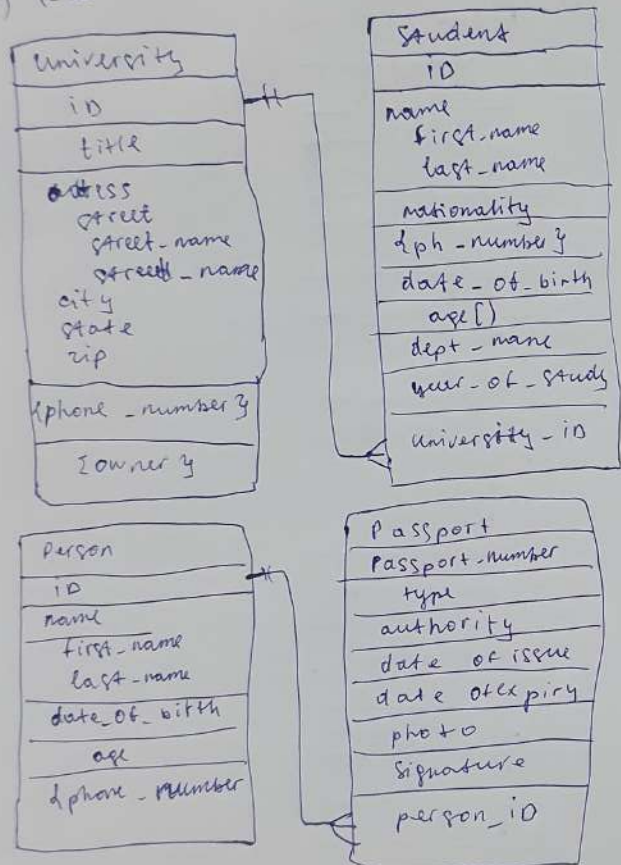 University
iD
title
street
street_name
street_name
city
state
zip
{phone_number}
{owner}
Student
iD
name
first_name
last_name
nationality
{ph_number}
date_of_birth
age()
dept_name
year_of_study
university_iD
Person
iD
name
first_name
last_name
date_of_birth
age
{phone_number
Passport
Passport_number
type
authority
date of issue
date of expiry
photo
Signature
person_iD